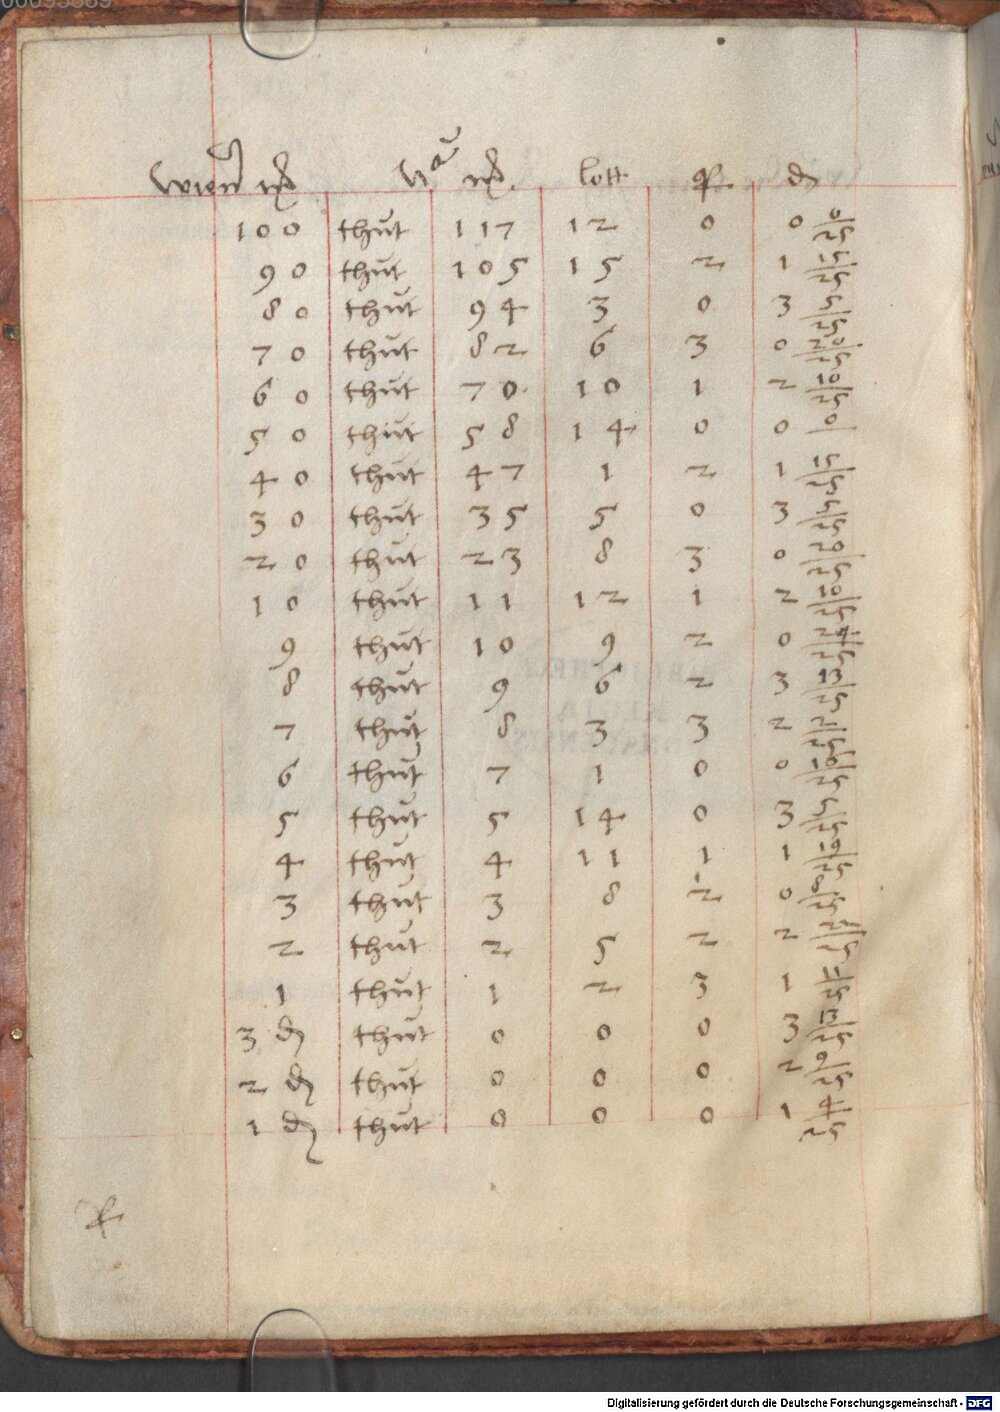 wienn mk Nur mk. lott q d
100 thut 117 12 0 0 0/25
90 thut 105 15 2 1 15/25
80 thut 94 3 0 3 5/25
70 thut 82 6 3 0 20/25
60 thut 70 10 1 2 10/25
50 thut 58 14 0 0 0
40 thut 47 1 2 1 15/25
30 thut 35 5 0 3 5/25
20 thut 23 8 3 0 20/25
10 thut 11 12 1 2 10/25
9 thut 10 9 2 0 24/25
8 thut 9 6 2 3 13/25
7 thut 8 3 3 2 2/25
6 thut 7 1 0 0 16/25
5 thut 5 14 0 3 5/25
4 thut 4 11 1 1 19/25
3 thut 3 8 2 0 8/25
2 thut 2 5 2 2 22/25
1 thut 1 2 3 1 11/25
3 d thut 0 0 0 3 13/25
2 d thut 0 0 0 2 9/25
1 d thut 0 0 0 1 4/25
Digitalisierung gefördert durch die Deutsche Forschungsgemeinschaft - DFG